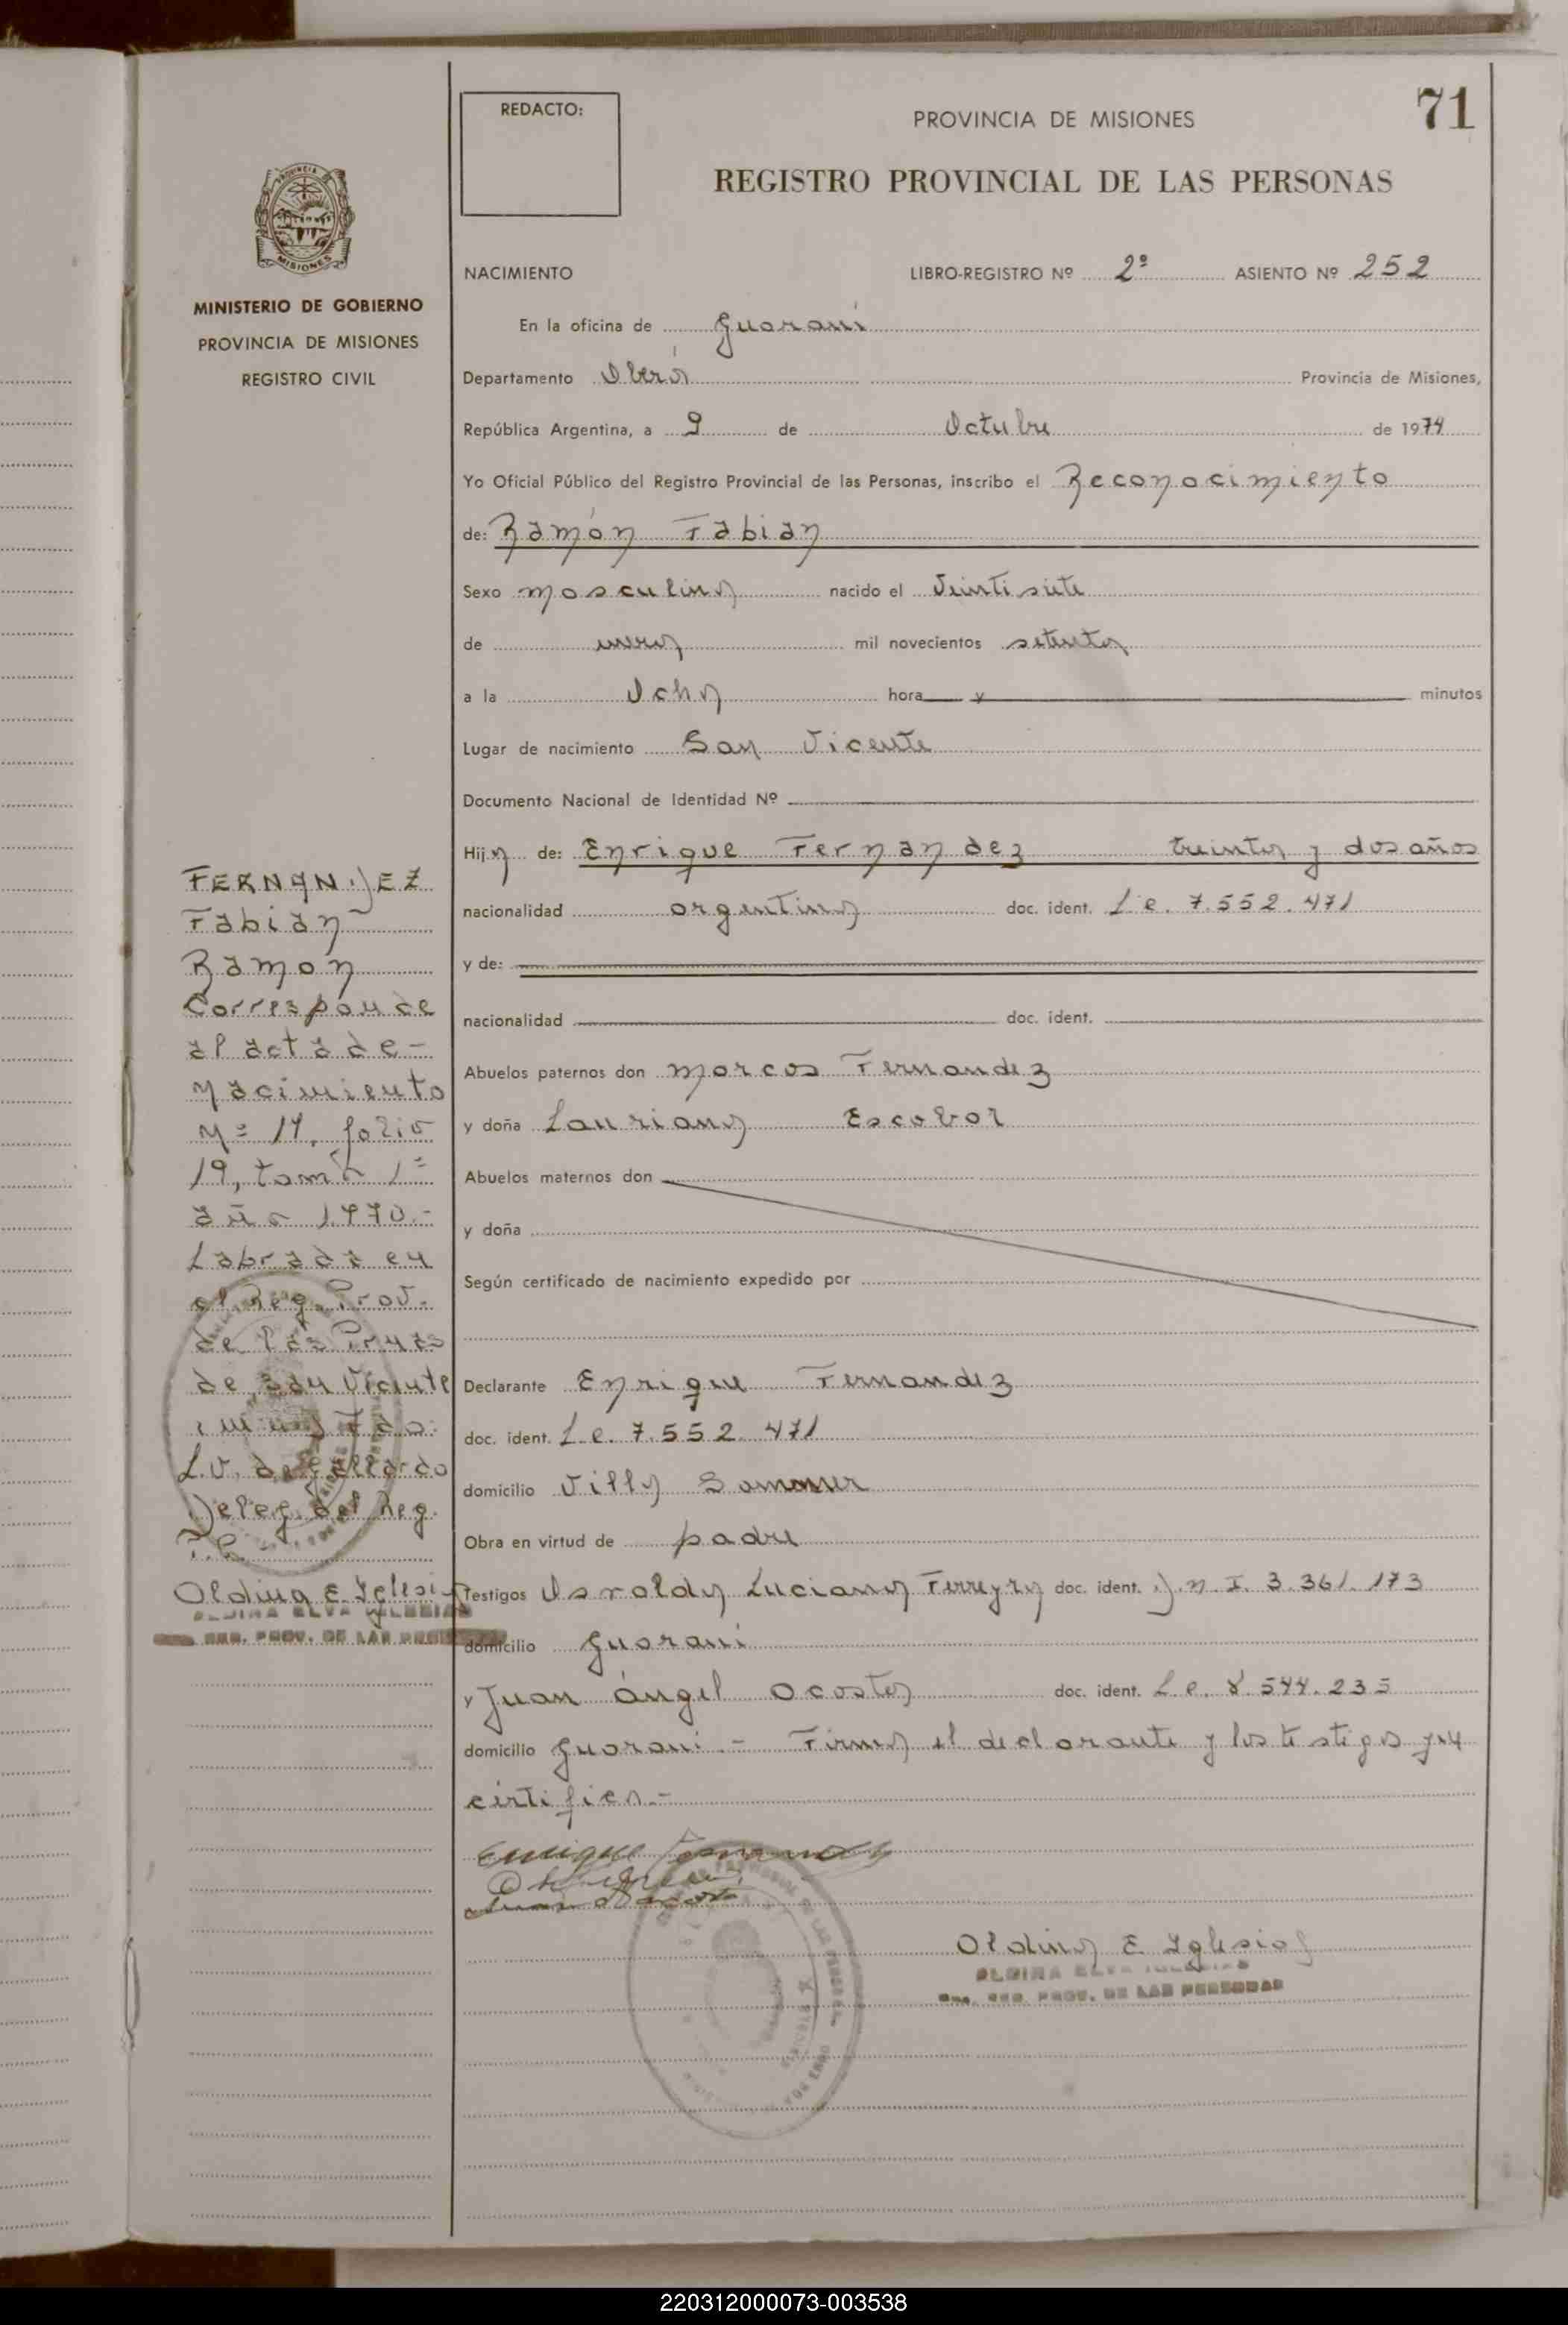 REDACTO:
PROVINCIA DE MISIONES
71
REGISTRO PROVINCIAL DE LAS PERSONAS
MISIONES
MINISTERIO DE GOBIERNO
PROVINCIA DE MISIONES
REGISTRO CIVIL
NACIMIENTO LIBRO-REGISTRO Nº 2º ASIENTO Nº 252
En la oficina de Guaraní
Departamento Oberá Provincia de Misiones,
República Argentina, a 9 de Octubre de 1974
Yo Oficial Público del Registro Provincial de las Personas, inscribo el Reconocimiento
de: Ramón Fabian
Sexo masculino nacido el Veintisiete
de enero mil novecientos setenta
a la Ocho hora y minutos
Lugar de nacimiento San Vicente
Documento Nacional de Identidad Nº
Hijo de: Enrique Fernandez treinta y dos años
nacionalidad argentino doc. ident. L.e. 7.552.471
y de:
nacionalidad doc. ident.
Abuelos paternos don Marcos Fernandez
y doña Lauriana Escobar
Abuelos maternos don
y doña
Según certificado de nacimiento expedido por
Declarante Enrique Fernandez
doc. ident. L.e. 7.552.471
domicilio Villa Sommer
Obra en virtud de padre
Testigos Osvaldo Luciano Ferreyra doc. ident. D.N.I. 3.361.173
domicilio Guaraní
y Juan Ángel Acosta doc. ident. L.e. 8.544.235
domicilio Guaraní.- Firma el declarante y los testigos
certifico.-
Enrique Fernandez
Oldina E Iglesias
OLDINA ELVA IGLESIAS
REG. PROV. DE LAS PERSONAS
FERNANDEZ
Fabian
Ramon
Corresponde
al acta de-
nacimiento
Nº 14, folio
19, tomo 1º
año 1970.-
Labrada en
el Reg. Prov.
de las
de San Vicente
L.V. de Gallardo
Deleg. del Reg.
Oldina E Iglesias
OLDINA ELVA IGLESIAS
REG. PROV. DE LAS
220312000073-003538